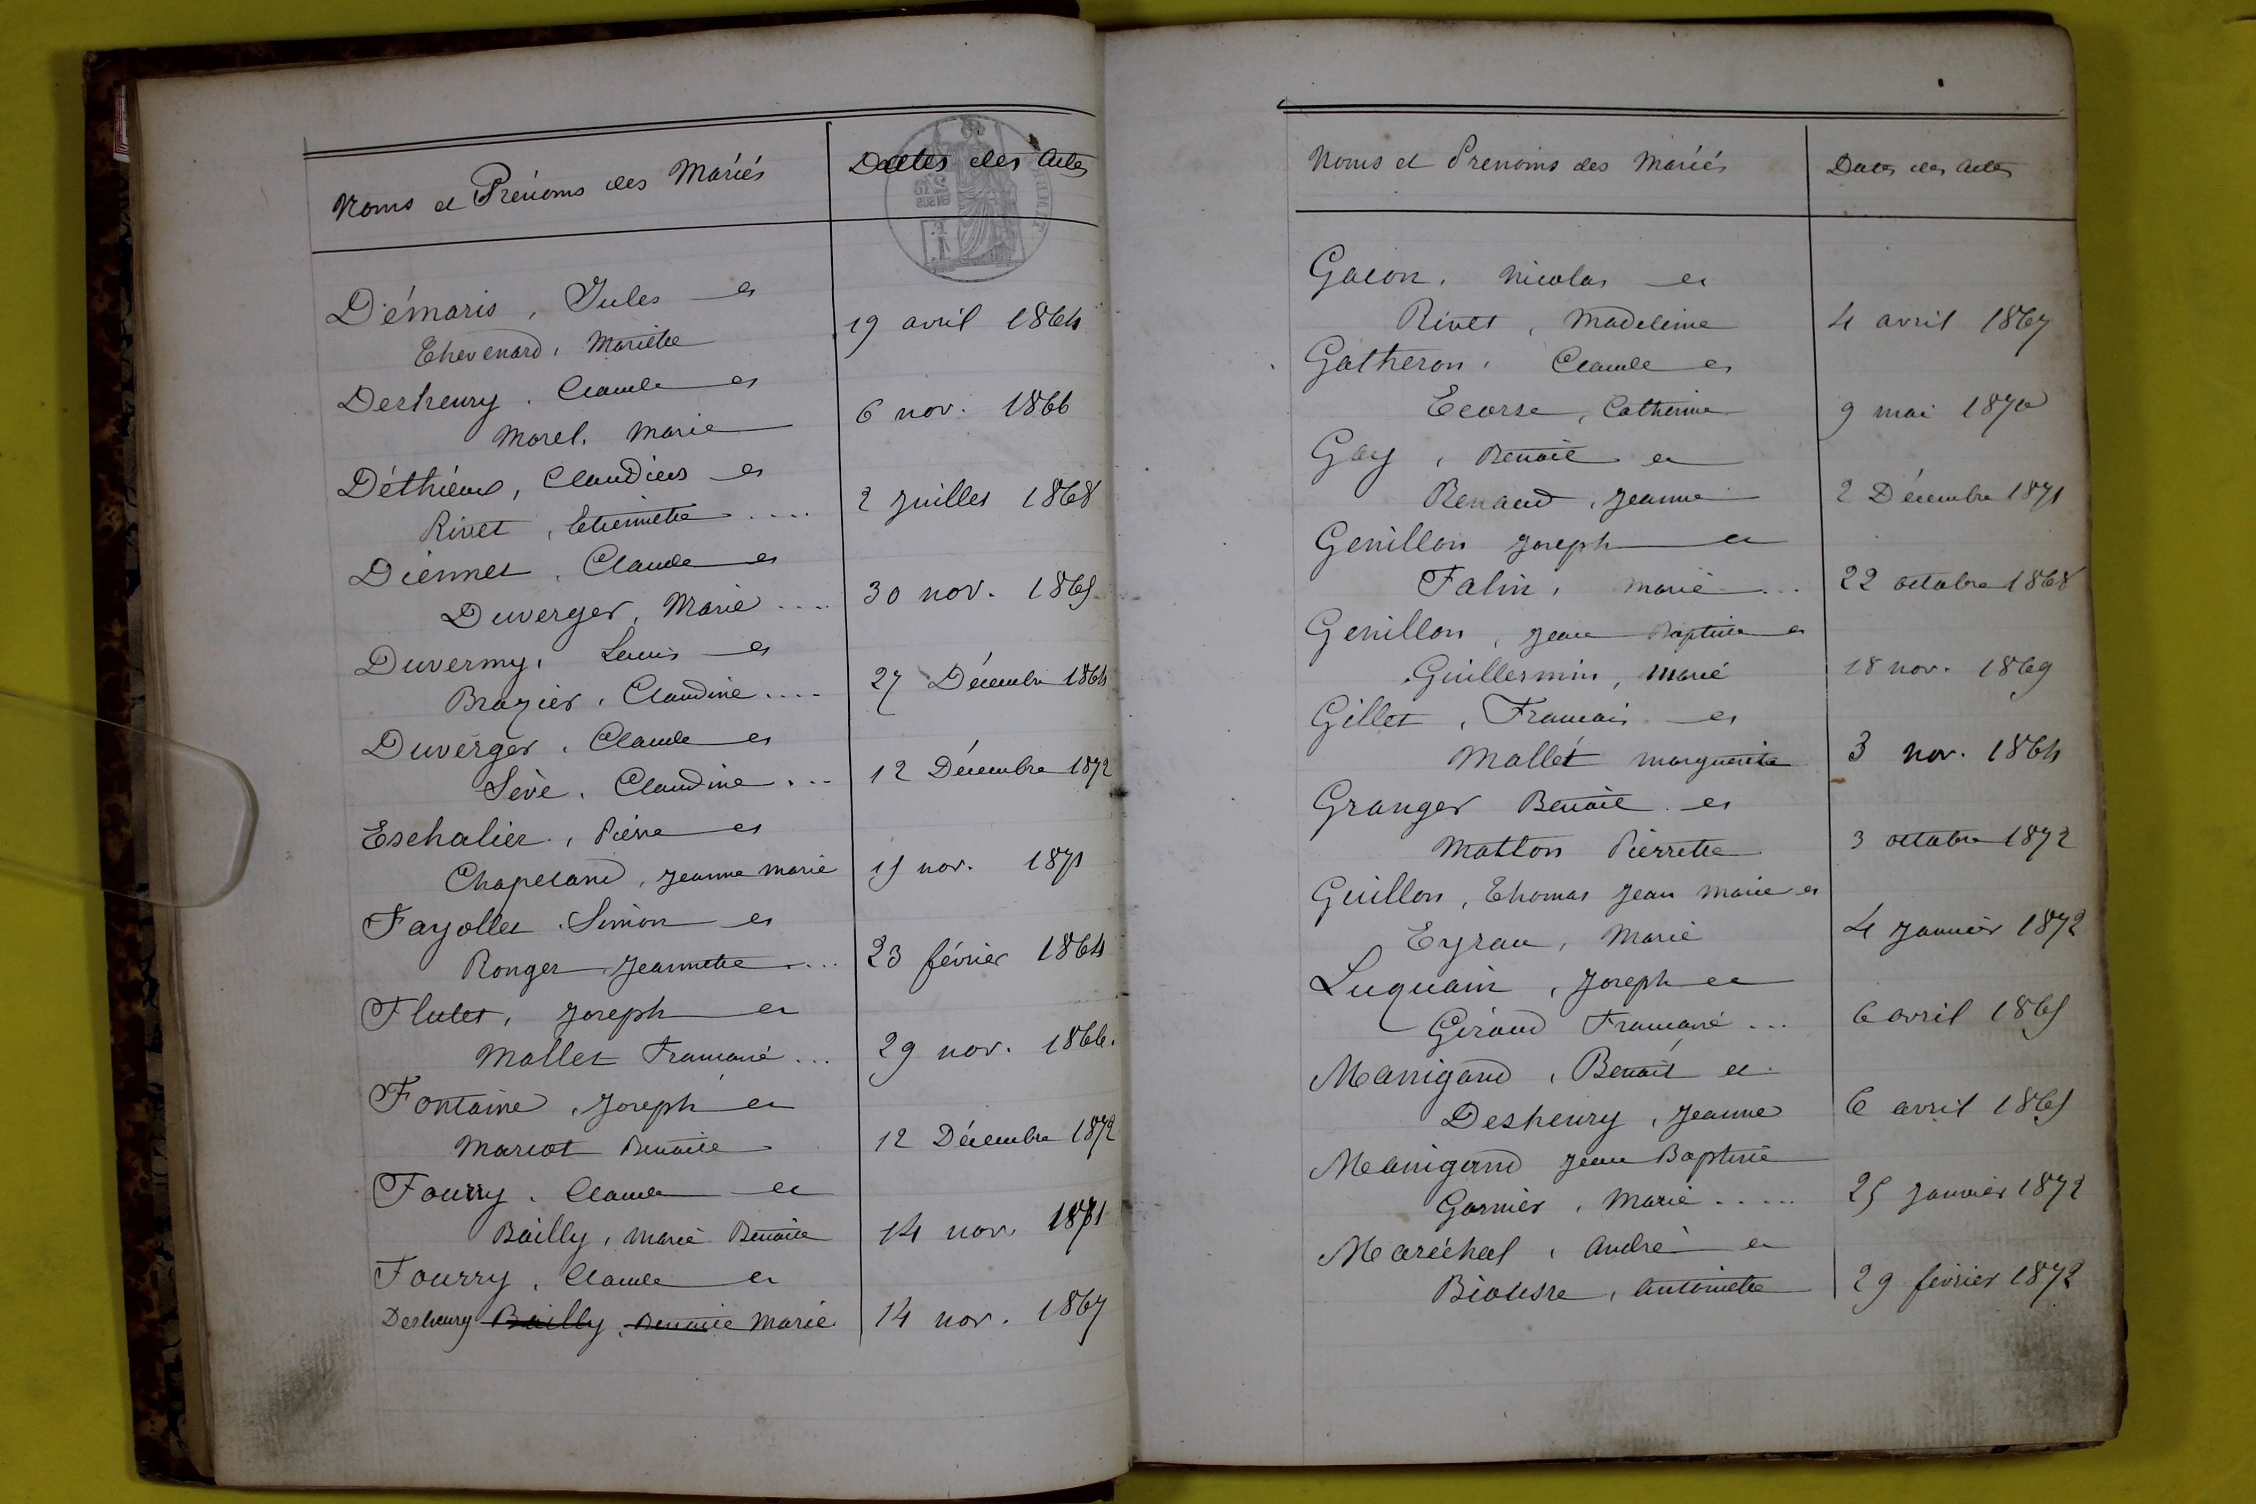 Noms et Prénoms des Mariés
Dates des Actes
Démaris, Jules et
Thevenard, Mariette
19 avril 1864
Desheury. Claude et
Morel. Marie
6 nov. 1866
Déthieux, Claudius et
Rivet, Etiennette ....
2 Juillet 1868
Diennet, Claude et
Duverger, Marie ....
30 nov. 1865
Duvermy, Louis et
Brazier, Claudine ....
27 Décembre 1864
Duverger, Claude et
Sève, Claudine ...
12 Décembre 1872
Eschalier, Pierre et
Chapeland, Jeanne Marie
15 nov. 1871
Fayollet Simon et
Ronger Jeannette ...
23 février 1864
Flutet, Joseph et
Mallet Francoise ...
29 nov. 1866.
Fontaine, Joseph et
Marcot Benoite
12 Décembre 1872
Fourry, Claude et
Bailly, Marie Benoite
14 nov. 1871
Fourry, Claude et
Desheury Bailly, Benoite Marie
14 nov. 1867
Noms et Prenoms des Mariés
Dates des Actes
Gacon, Nicolas et
Rivet, Madeleine
4 avril 1867
Gatheron, Claude et
Ecorse, Catherine
9 mai 1870
Gay, Benoit et
Renaud, Jeanne
2 Décembre 1871
Genillon Joseph et
Falin, Marie ...
22 octobre 1868
Genillon, Jean Baptiste et
Guillermin, Marie
18 nov. 1869
Gillet, Francois et
Mallet Marguerite
3 nov. 1864
Granger Benoit et
Matton Pierrette
3 octobre 1872
Guillon, Thomas Jean Marie et
Eyrau, Marie
4 Janvier 1872
Luquain, Joseph et
Giraud Francoise ...
6 avril 1865
Manigand, Benoit et
Desheury, Jeanne
6 avril 1865
Manigand Jean Baptiste
Garnier, Marie .....
25 Janvier 1872
Maréchal, André et
Biolesse, Antoinette
29 février 1872